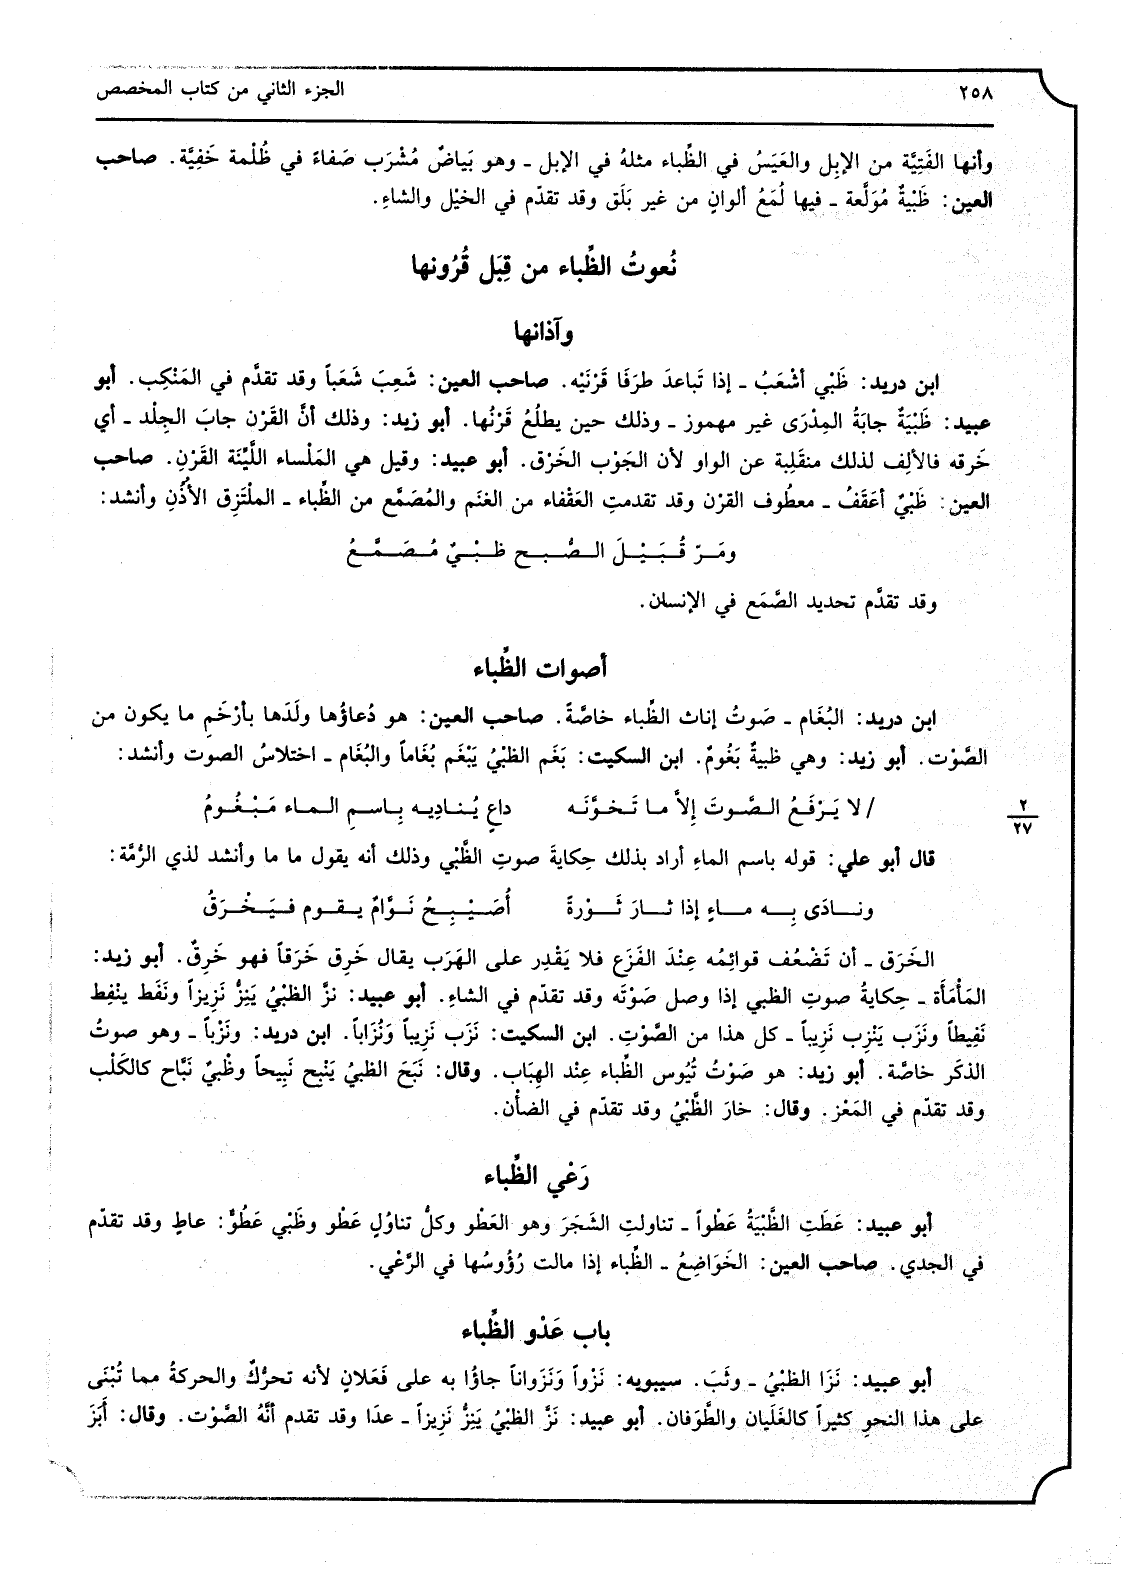 ٢٥٨
الجزء الثاني من كتاب المخصص
وأنها الفَتِيَّة من الإبِل والعَيَسُ في الظِّباء مثلهُ في الإبل ـ وهو بَياضٌ مُشْرَب صَفاءً في ظُلْمة خَفِيَّة. صاحب
العين: ظَبْيةٌ مُوَلَّعة ـ فيها لُمَعُ ألوانٍ من غير بَلَق وقد تقدّم في الخيْل والشاءِ.
نُعوتُ الظِّباء من قِبَل قُرُونها
وآذانها
ابن دريد: ظَبْي أشْعَبُ ـ إذا تَباعدَ طرَفَا قَرْنَيْه. صاحب العين: شَعِبَ شَعَباً وقد تقدَّم في المَنْكِب. أبو
عبيد: ظَبْيَةٌ جابَةُ المِدْرَى غير مهموز ـ وذلك حين يطلُعُ قَرْنُها. أبو زيد: وذلك أنَّ القَرْن جابَ الجِلْد ـ أي
خَرقه فالألِف لذلك منقَلِبة عن الواو لأن الجَوْب الخَرْق. أبو عبيد: وقيل هي المَلْساء اللَّيِّنَة القَرْنِ. صاحب
العين: ظَبْيٌ أعَقَفُ ـ معطُوف القرْن وقد تقدمتِ العَقْفاء من الغنَم والمُصَمَّع من الظِّباء ـ الملْتَزِق الأُذُنِ وأنشد:
ومَرّ قُبَيْلَ الصُّبح ظبْيٌ مُصَمَّعُ
وقد تقدَّم تحديد الصَّمَع في الإنسان.
أصوات الظِّباء
ابن دريد: البُغَام ـ صَوتُ إناث الظِّباء خاصَّةً. صاحب العين: هو دُعاؤُها ولَدَها بأرْخَمِ ما يكون من
الصَّوْت. أبو زيد: وهي ظبيةٌ بَغُومٌ. ابن السكيت: بَغَم الظبْيُ يَبْغَم بُغَاماً والبُغَام ـ اختلاسُ الصوت وأنشد:
/ لا يَرْفَعُ الصَّوتَ إلاَّ ما تَخوَّنَه داعٍ يُنادِيه بِاسمِ الماء مَبْغُومُ
٢
٢٧
قال أبو علي: قوله باسم الماءِ أراد بذلك حِكايةَ صوتِ الظَّبْي وذلك أنه يقول ما ما وأنشد لذي الرُّمَّة:
ونادَى بِه ماءٍ إذا ثارَ ثَوْرةً أُصَيْبِحُ نَوَّامٌ يقوم فيَخْرَقُ
الخَرَق ـ أن تَضْعُف قوائِمُه عِنْدَ الفَزَع فلا يَقْدِر على الهَرَب يقال خَرِق خَرَقاً فهو خَرِقٌ. أبو زيد:
المَأْمَأَة ـ حِكايةُ صوتِ الظبي إذا وصل صَوْتَه وقد تقدّم في الشاءِ. أبو عبيد: نزَّ الظبْيُ يَنِزُّ نَزِيزاً ونَفَط ينْفِط
نَفِيطاً ونَزَب يَنْزِب نَزِيباً ـ كل هذا من الصَّوْتِ. ابن السكيت: نَزَب نَزِيباً وَنُزَاباً. ابن دريد: ونَزْباً ـ وهو صوتُ
الذكَر خاصَّة. أبو زيد: هو صَوْتُ تُيُوس الظِّباء عِنْد الهِبَاب. وقال: نَبَحَ الظبيُ يَنْبِح نَبِيحاً وظْبيٌ نَبَّاح كالكَلْب
وقد تقدّم في المَعْز. وقال: خارَ الظَّبْيُ وقد تقدّم في الضأْن.
رَعْي الظِّباء
أبو عبيد: عَطَتِ الظَّبْيَةُ عَطْواً ـ تناولتِ الشَجَرَ وهو العَطْو وكلُّ تناوُلٍ عَطْو وظَبْي عَطُوٌّ: عاطٍ وقد تقدّم
في الجدي. صاحب العين: الخَوَاضِعُ ـ الظِّباء إذا مالت رُؤُوسُها في الرَّعْي.
باب عَدْو الظِّباء
أبو عبيد: نَزَا الظبْيُ ـ وثَبَ. سيبويه: نَزْواً وَنَزَواناً جاؤُا به على فَعَلانٍ لأنه تحرُّكٌ والحركةُ مما تُبْنَى
على هذا النحوِ كثيراً كالغَلَيان والطَّوَفان. أبو عبيد: نَزَّ الظبْيُ يَنِزُّ نَزِيزاً ـ عدَا وقد تقدم أنَّهُ الصَّوْت. وقال: أَبَزَ